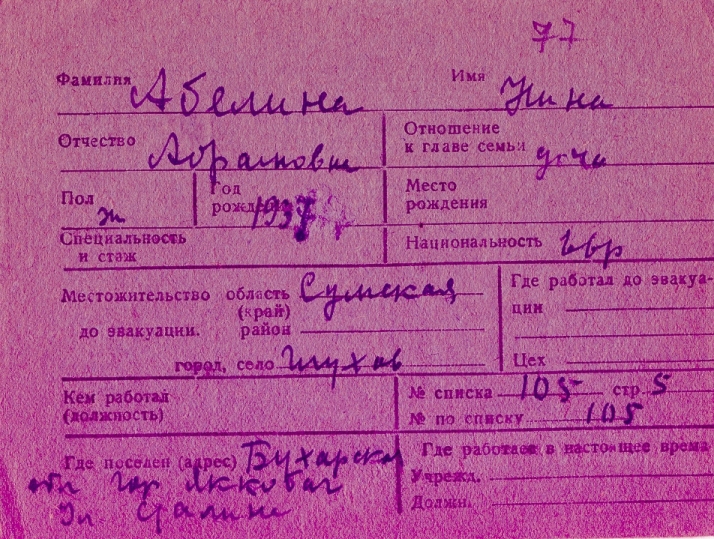 77
Фамилия Абелина Имя Нина
Отчество Абрамовна Отношение к главе семьи дочь
Пол ж Год рождения 1937 Место рождения
Специальность и стаж Национальность евр
Местожительство до эвакуации. область (край) Сумская
район
город, село Глухов
Где работал до эвакуа-
ции
Цех
Кем работал (должность)
№ списка 105 стр. 5
№ по списку 105
Где поселен (адрес) Бухарская
обл гор
Ул Сталина
Где работает в настоящее время
Учрежд.
Должн.